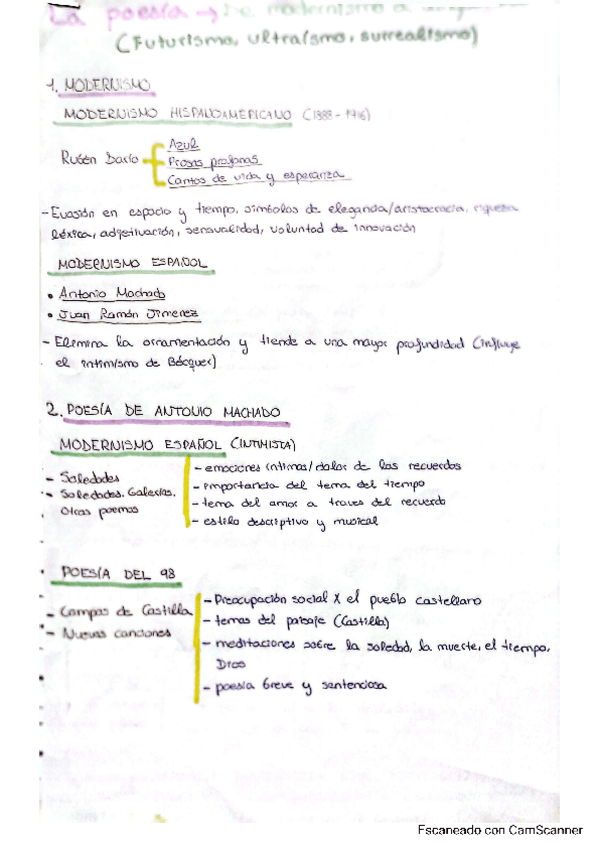 La poesía → De modernismo a
(Futurismo, ultraísmo, surrealismo)
1. MODERNISMO
MODERNISMO HISPANOAMERICANO (1888 - 1916)
Rubén Darío
Azul
Prosas profanas
Cantos de vida y esperanza
- Evasión en espacio y tiempo, símbolos de elegancia/aristocracia, riqueza
léxica, adjetivación, sensualidad, voluntad de innovación
MODERNISMO ESPAÑOL
• Antonio Machado
• Juan Ramón Jimenez
- Elimina la ornamentación y tiende a una mayor profundidad (influye
el intimismo de Bécquer)
2. POESÍA DE ANTONIO MACHADO
MODERNISMO ESPAÑOL (INTIMISTA)
- Soledades
- Soledades. Galerías.
Otras poemas
- emociones íntimas/dolor de los recuerdos
- importancia del tema del tiempo
- tema del amor a traves del recuerdo
- estilo descriptivo y musical
POESÍA DEL 98
- Campos de Castilla
- Nuevas canciones
- Preocupación social X el pueblo castellano
- temas del paisaje (Castilla)
- meditaciones sobre la soledad, la muerte, el tiempo,
Dios
- poesía breve y sentenciosa
Escaneado con CamScanner